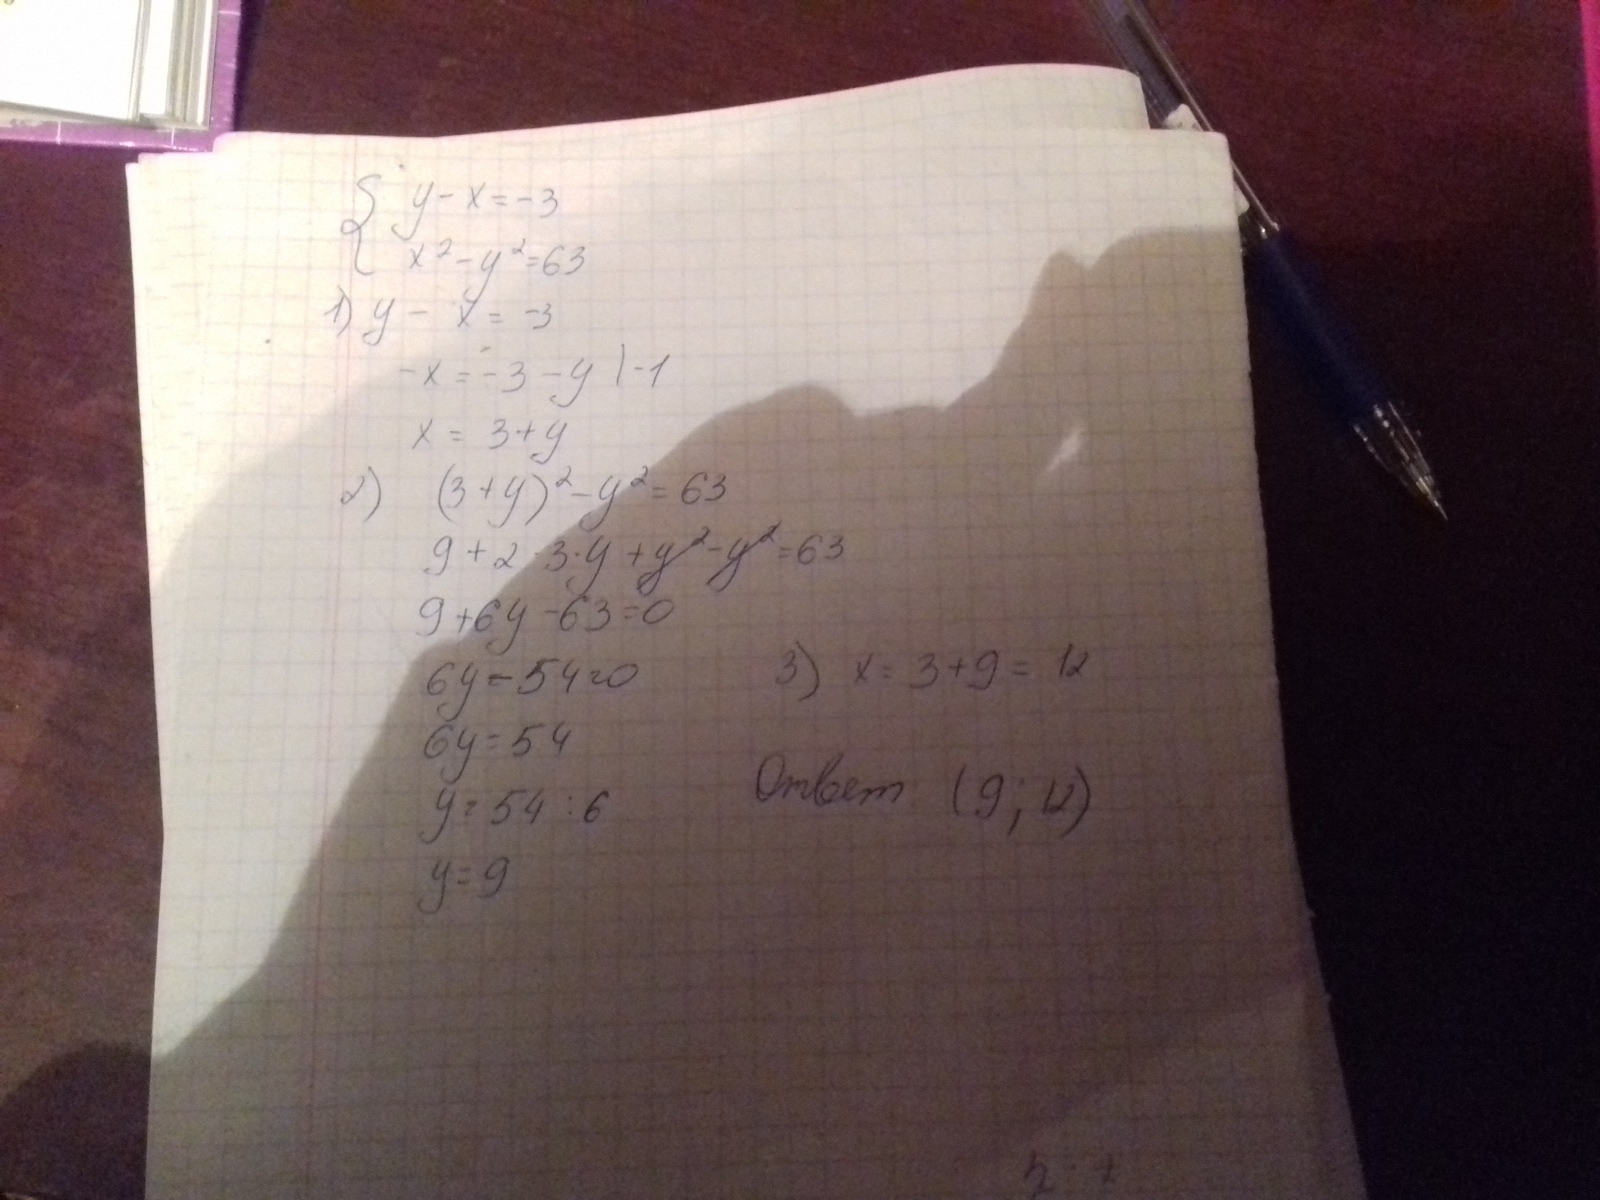 { y - x = -3
x² - y² = 63
1) y - x = -3
-x = -3 - y | -1
x = 3 + y
2) (3 + y)² - y² = 63
9 + 2 · 3 · y + y² - y² = 63
9 + 6y - 63 = 0
6y - 54 = 0
6y = 54
y = 54 : 6
y = 9
3) x = 3 + 9 = 12
Ответ (9; 12)